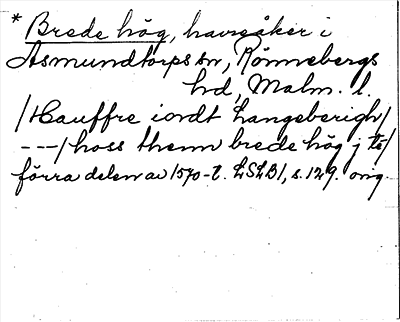 * Brede hög, havreåker i
Asmundtorps sn, Rönnebergs
hd, Malm. l.
/Hauffre iordt Langeberigh/
---/hoss thenn brede hög j te/
förra delen av 1570-t. LSLB1, s. 129. orig.